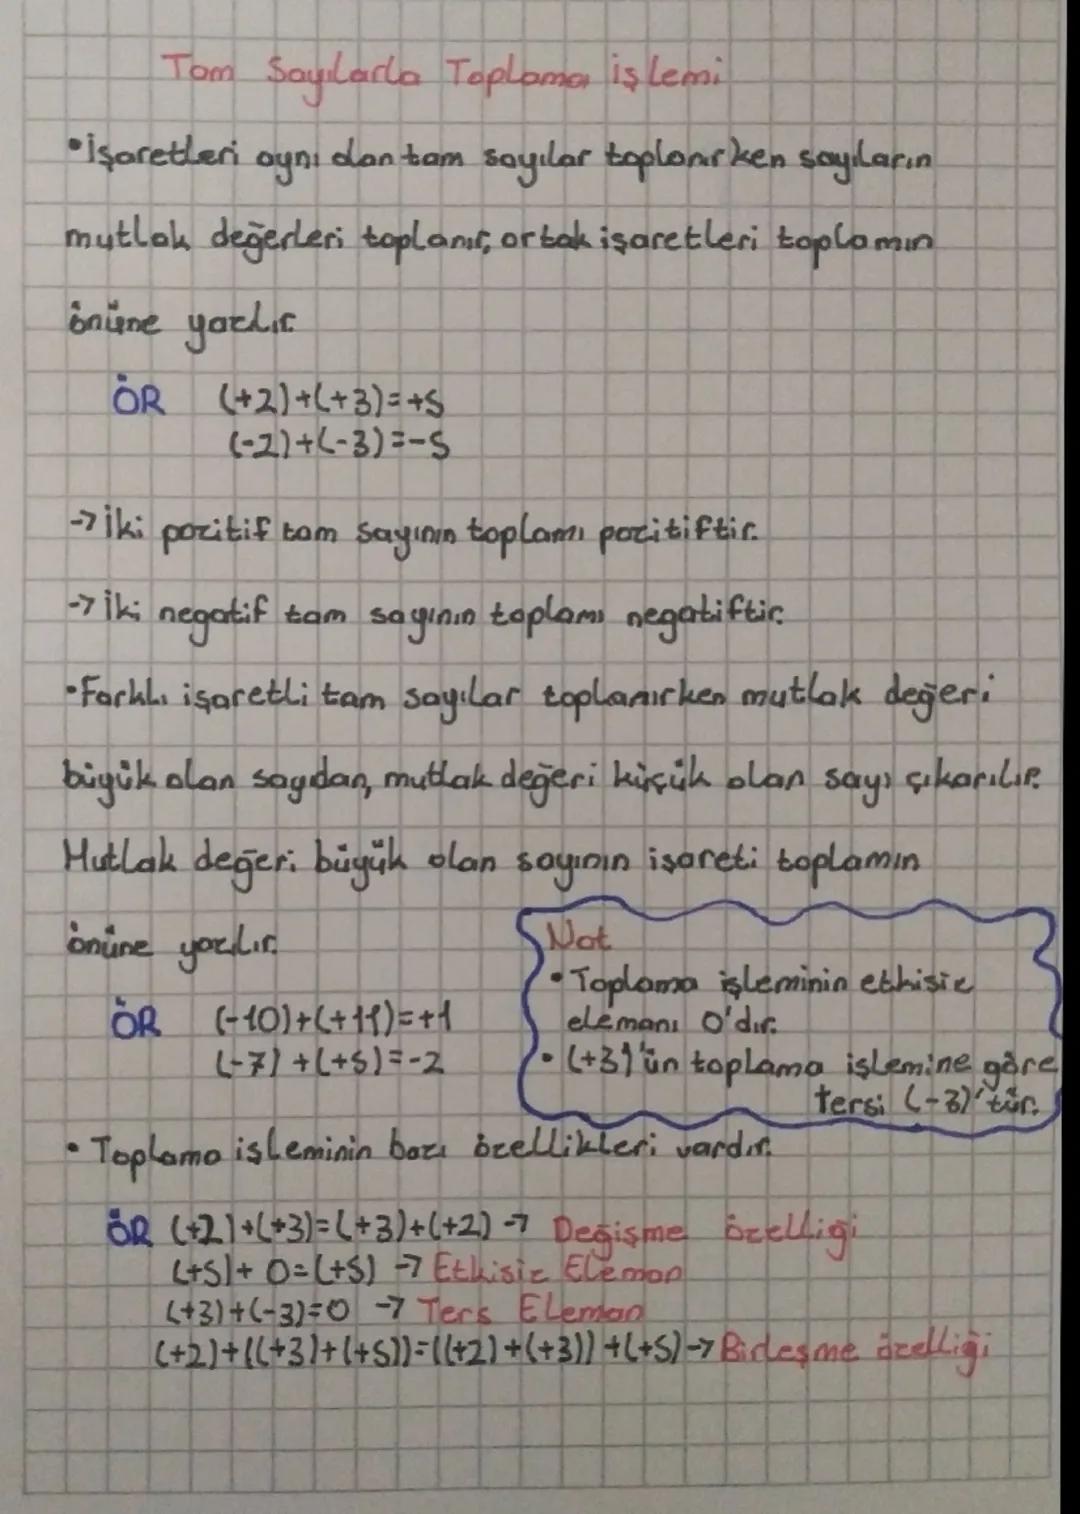 Tam Sayılarla Toplama işlemi
• İşaretleri aynı olan tam sayılar toplanırken sayıların
mutlak değerleri toplanır, ortak işaretleri toplamın
önüne yazılır.
ÖR (+2)+(+3)=+5
(-2)+(-3)=-5
→ İki pozitif tam sayının toplamı pozitiftir.
→ İki negatif tam sayının toplamı negatiftir.
• Farklı işaretli tam sayılar toplanırken mutlak değeri
büyük olan sayıdan, mutlak değeri küçük olan sayı çıkarılır.
Mutlak değeri büyük olan sayının işareti toplamın
önüne yazılır.
ÖR (-10)+(+11)=+1
(-7)+(+5)=-2
Not
• Toplama işleminin etkisiz
elemanı 0'dır.
• (+3)'ün toplama işlemine göre
tersi (-3)'tür.
• Toplama işleminin bazı özellikleri vardır.
ÖR (+2)+(+3)=(+3)+(+2) → Değişme özelliği
(+5)+0=(+5) → Etkisiz Eleman
(+3)+(-3)=0 → Ters Eleman
(+2)+((+3)+(+5))=((+2)+(+3))+(+5) → Birleşme özelliği